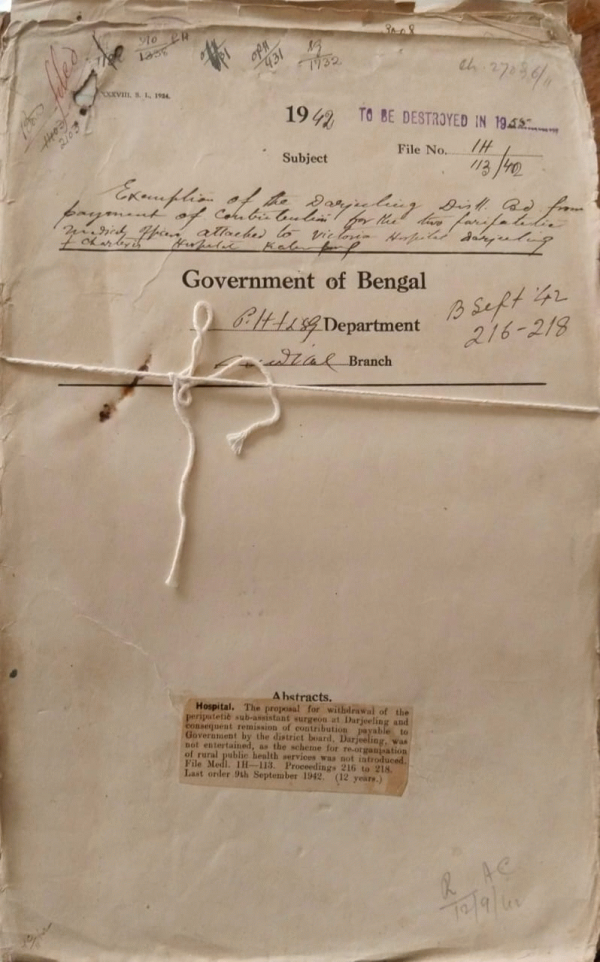 filed
OPA 431
1932
Ch. 27036/11
CXXVIII. S. I., 1936.
1942 TO BE DESTROYED IN 1955
Subject File No. 1H
113/42
Exemption of the Darjeeling Distt. Bd from
payment of contribution for the two peripatetic
medical officers attached to Victoria Hospital Darjeeling
+ Charteris Hospital Kalimpong
Government of Bengal
P.H & LSG Department
B Sept '42
216-218
Medical Branch
Abstracts.
Hospital. The proposal for withdrawal of the
peripatetic sub-assistant surgeon at Darjeeling and
consequent remission of contribution payable to
Government by the district board, Darjeeling, was
not entertained, as the scheme for re-organisation
of rural public health services was not introduced.
File Medl. 1H—113. Proceedings 216 to 218.
Last order 9th September 1942. (12 years.)
R AC